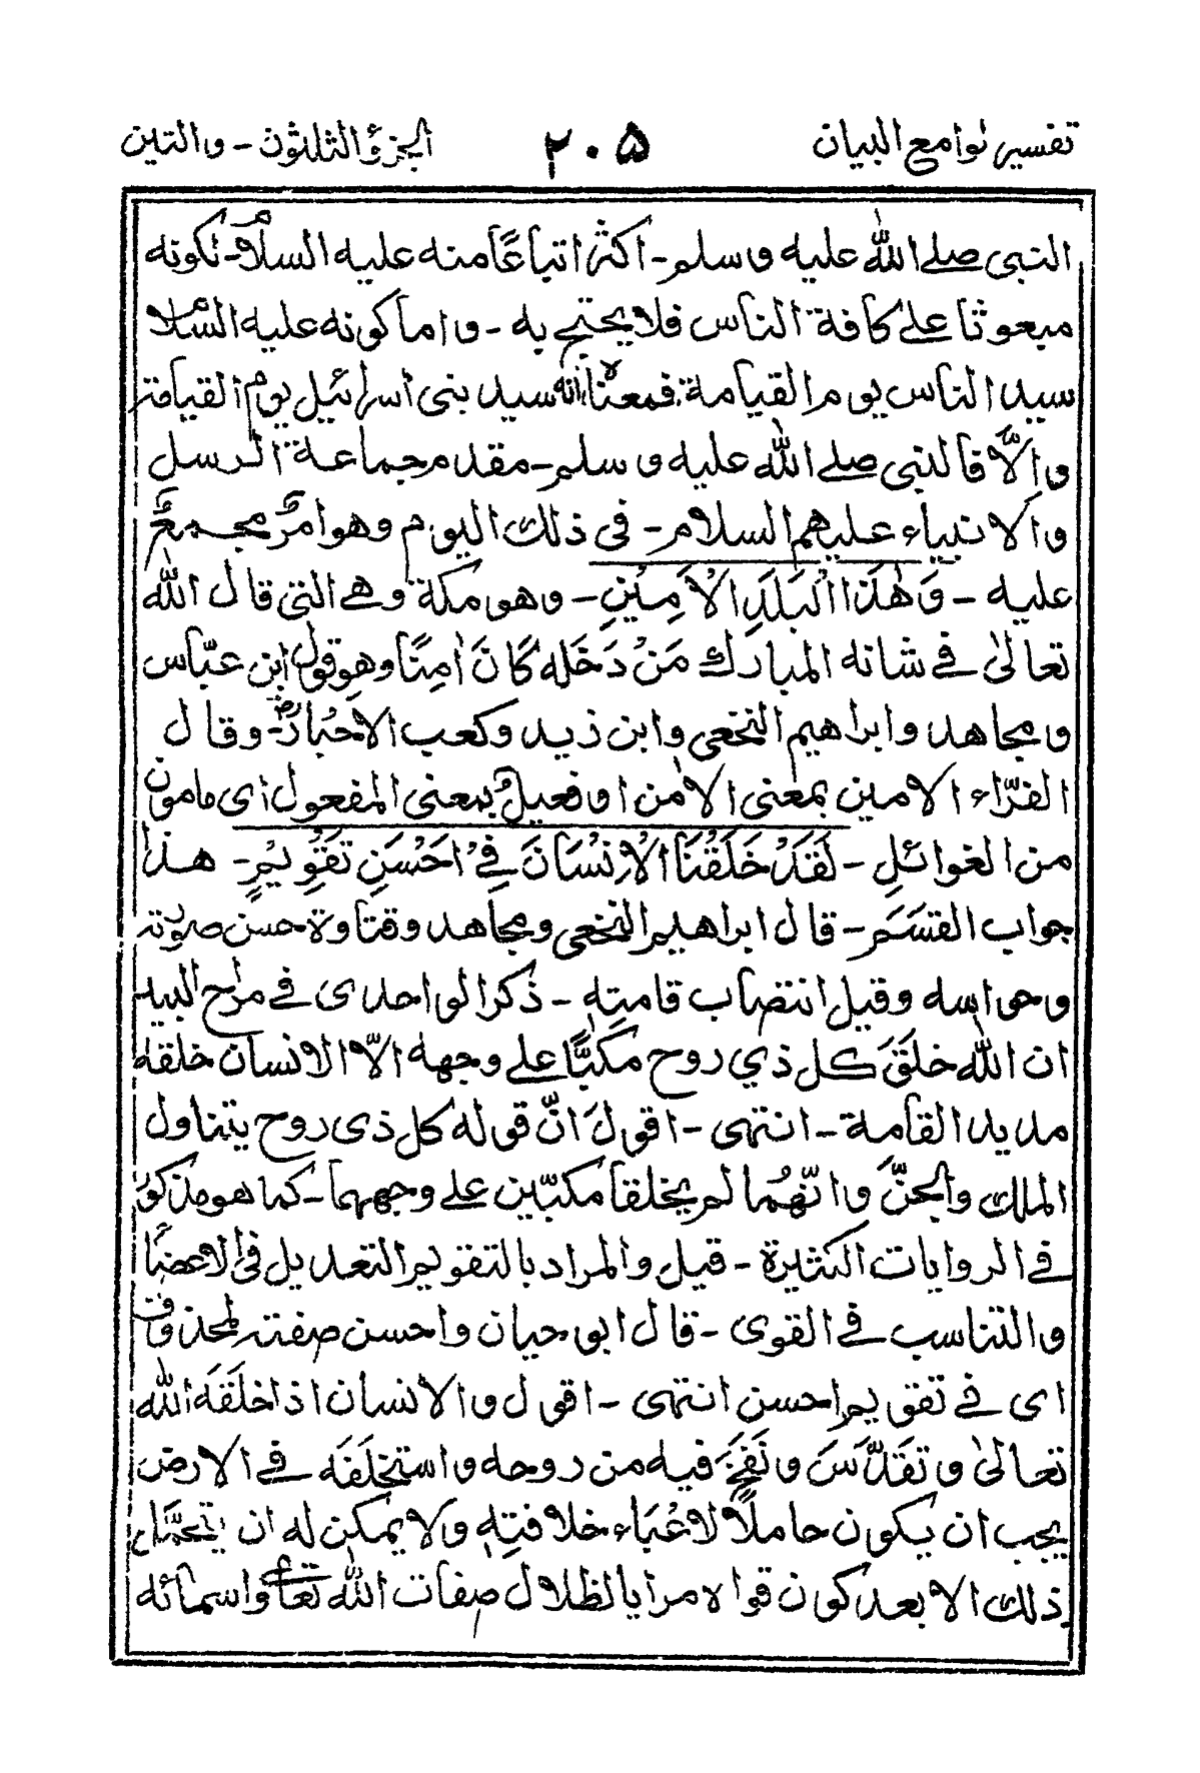 تفسير لوامع البيان ٢٠٥ الجزء الثلثون - والتين
النبى صلے اللّٰه عليه وسلم - اكثر اتباعًا منه عليه السلام - لكونه
مبعوثا علےٰ كافة الناس فلا يحتج به - واما كونه عليه السلام
سيد الناس يوم القيامة فمعناه انه سيد بنى اسرائيل يوم القيامة
والّا فالنبى صلے اللّٰه عليه وسلم - مقدم جماعة الرسل
والانبياء عليهم السلام - فى ذلك اليوم وهو امر مجمع
عليه - وَهٰذَا الْبَلَدِ الْاَمِيْنِ - وهو مكة وهے التى قال اللّٰه
تعالىٰ فے شانه المبارك مَنْ دَخَلَه كَانَ اٰمِنًا وهو قول ابن عبّاس
ومجاهد وابراهيم النخعى وابن زيد وكعب الاحْبارؓ - وقال
الفرّاء الامين بمعنى الاٰمن او فعيلٌ بمعنى المفعول اى مامون
من الغوائلِ - لَقَدْ خَلَقْنَا الْاِنْسَانَ فِےْ اَحْسَنِ تَقْوِيْمٍ - هذا
جواب القسَمَ - قال ابراهيم النخعى ومجاهد وقتاوة حسن صورته
وحواسه وقيل انتصاب قامتِهٖ - ذكر الواحدى فے مراح البيد
ان اللّٰه خلَقَ كل ذي روح مكبًّا علے وجهه الّا الانسان خلقهٰ
مديد القامة - انتهى - اقولَ انّ قوله كل ذى روح يتناول
الملك والجنّ وانّهُما لم يخلقا مكبّين علے وجههما - كما هو مذكور
فے الروايات الكثيرة - قيل والمراد بالتقويم التعديل فى الاعضاء
والتناسب فے القوى - قال ابو حيان واحسن صفته لمحذوف
اى فے تقويم احسن انتهى - اقول والانسان اذا خلقَه اللّٰه
تعالىٰ وتقدّسَ ونَفَخَ فيه من روحه واستخلَفَه فے الارض
يجب ان يكون حاملًا لاعْبَاء خلافتِهٖ ولا يمكن له ان يتحمَّل
ذلك الا بعد كون قواه مرايا لظلال صفات اللّٰه تعالےٰ واسمائه